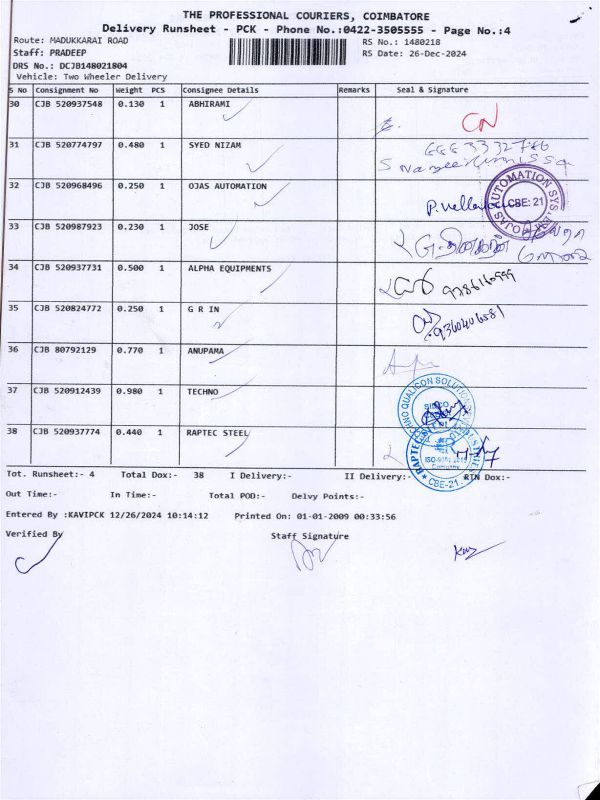 THE PROFESSIONAL COURIERS, COIMBATORE
Delivery Runsheet - PCK - Phone No.:0422-3505555 - Page No.:4
Route: MADUKKARAI ROAD RS No.: 1480218
Staff: PRADEEP RS Date: 26-Dec-2024
DRS No.: DCJB148021804
Vehicle: Two Wheeler Delivery
S No Consignment No Weight PCS Consignee Details Remarks Seal & Signature
30 CJB 520937548 0.130 1 ABHIRAMI CN
31 CJB 520774797 0.480 1 SYED NIZAM
32 CJB 520968496 0.250 1 OJAS AUTOMATION
OJAS AUTOMATION SYS CBE: 21
33 CJB 520987923 0.230 1 JOSE
34 CJB 520937731 0.500 1 ALPHA EQUIPMENTS
35 CJB 520824772 0.250 1 G R IN 9360406581
36 CJB 80792129 0.770 1 ANUPAMA
37 CJB 520912439 0.980 1 TECHNO
QUALICON SOLUTION
38 CJB 520937774 0.440 1 RAPTEC STEEL
CBE-21
Tot. Runsheet:- 4 Total Dox:- 38 I Delivery:- II Delivery:- RTN Dox:-
Out Time:- In Time:- Total POD:- Delvy Points:-
Entered By :KAVIPCK 12/26/2024 10:14:12 Printed On: 01-01-2009 00:33:56
Verified By Staff Signature